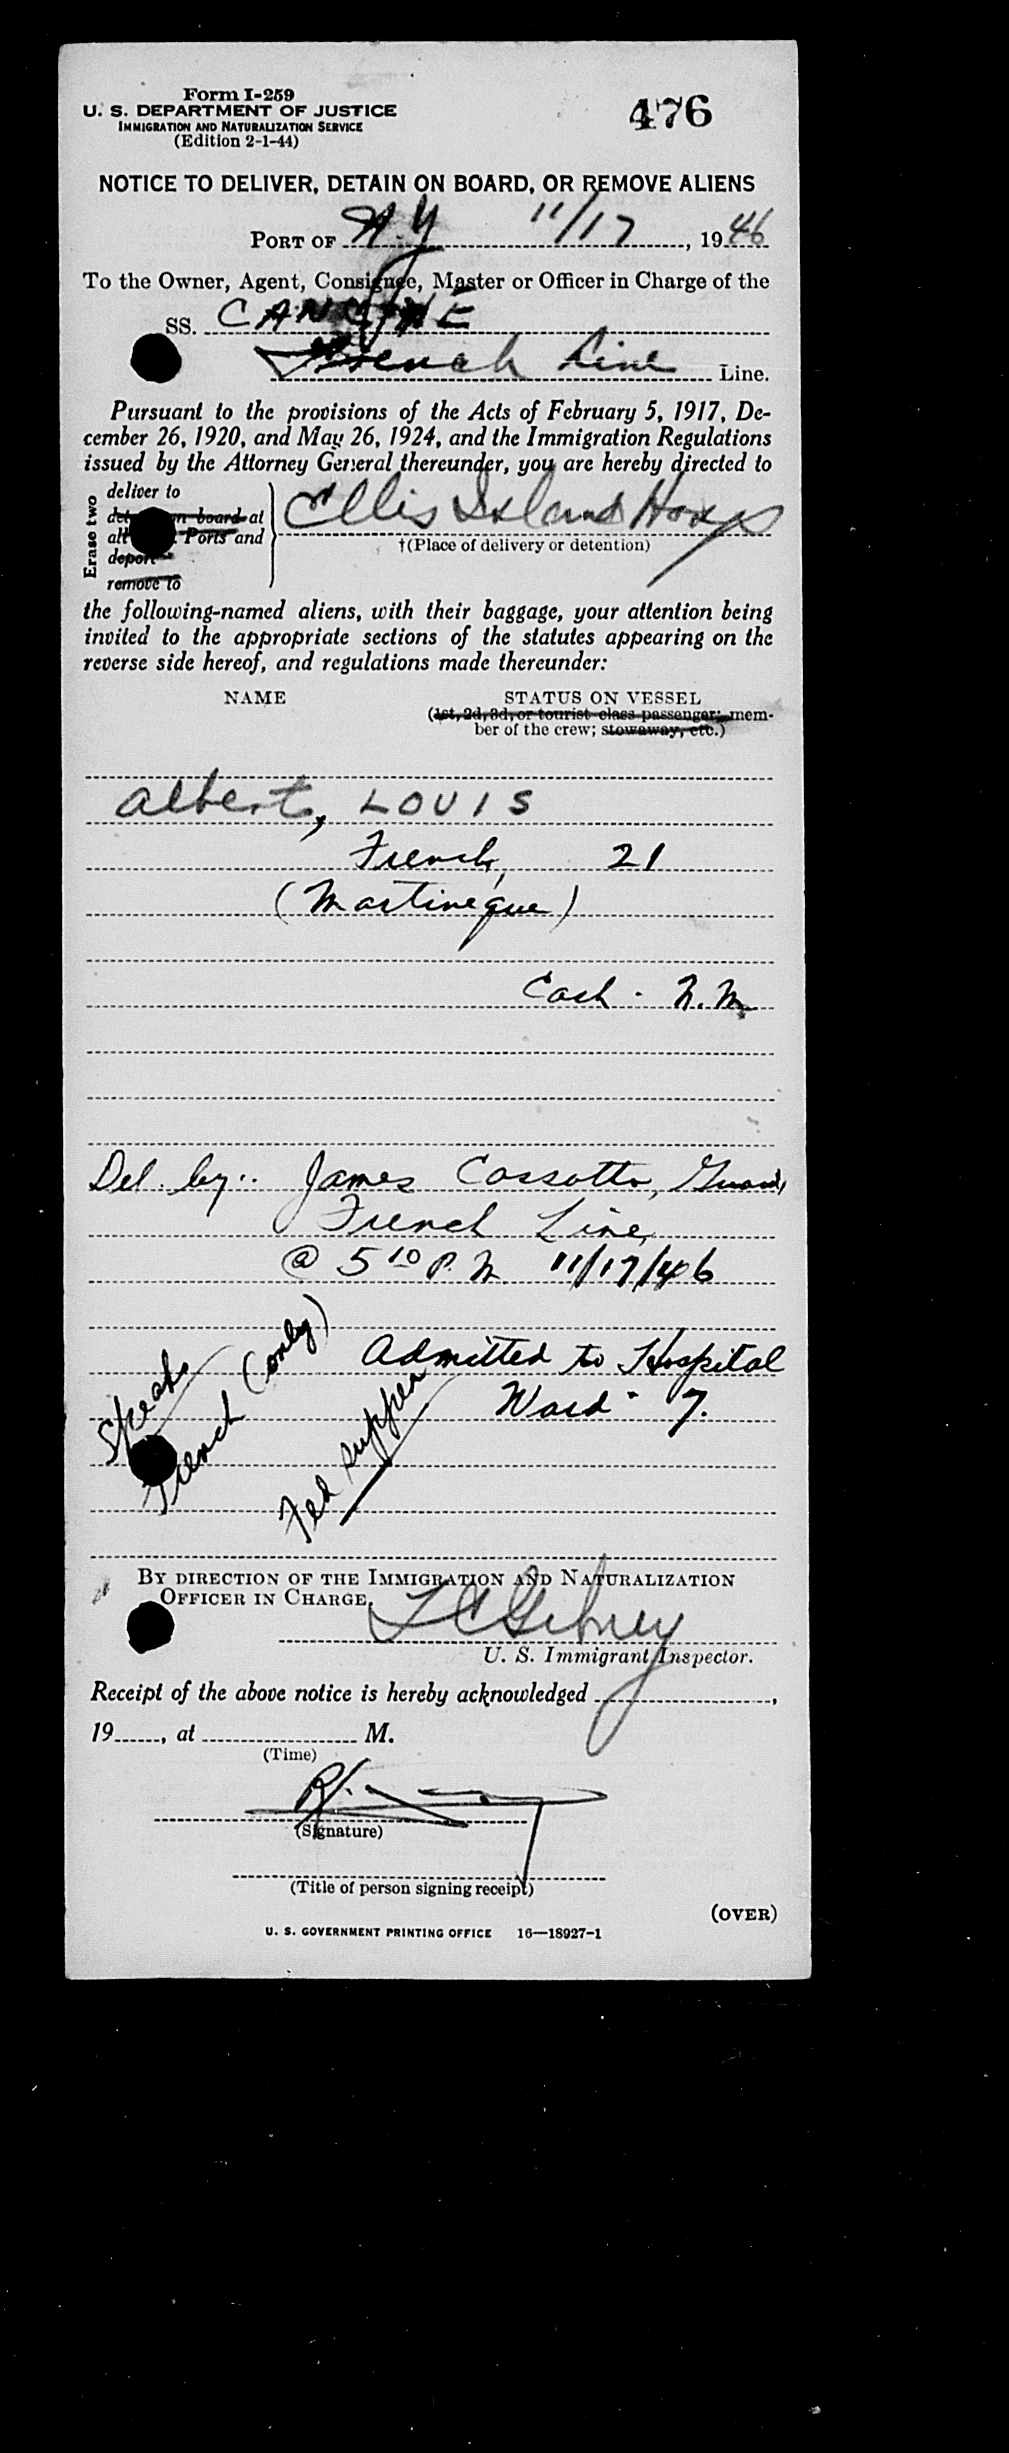 Form I-259
U. S. DEPARTMENT OF JUSTICE
IMMIGRATION AND NATURALIZATION SERVICE
(Edition 2-1-44)
476
NOTICE TO DELIVER, DETAIN ON BOARD, OR REMOVE ALIENS
PORT OF N.Y 11/17, 1946
To the Owner, Agent, Consignee, Master or Officer in Charge of the
SS.
French Line Line.
Pursuant to the provisions of the Acts of February 5, 1917, De-
cember 26, 1920, and May 26, 1924, and the Immigration Regulations
issued by the Attorney General thereunder, you are hereby directed to
Erase two
deliver to
board at
Ports and
deport
remove to
Ellis Island Hosp
†(Place of delivery or detention)
the following-named aliens, with their baggage, your attention being
invited to the appropriate sections of the statutes appearing on the
reverse side hereof, and regulations made thereunder:
NAME STATUS ON VESSEL
(1st, 2d, 3d, or tourist class passenger; mem-
ber of the crew; stowaway, etc.)
Albert, LOUIS
French, 21
(Martineque)
Cash - N.M.
Del. by: James Cassotto, Guard,
French Line,
@ 5 10 P.M 11/17/46
Speaks
French (only)
Fed supper
Admitted to Hospital
Ward - 7.
BY DIRECTION OF THE IMMIGRATION AND NATURALIZATION
OFFICER IN CHARGE.
U. S. Immigrant Inspector.
Receipt of the above notice is hereby acknowledged ,
19 , at M.
(Time)
(Signature)
(Title of person signing receipt)
(OVER)
U. S. GOVERNMENT PRINTING OFFICE 16—18927-1